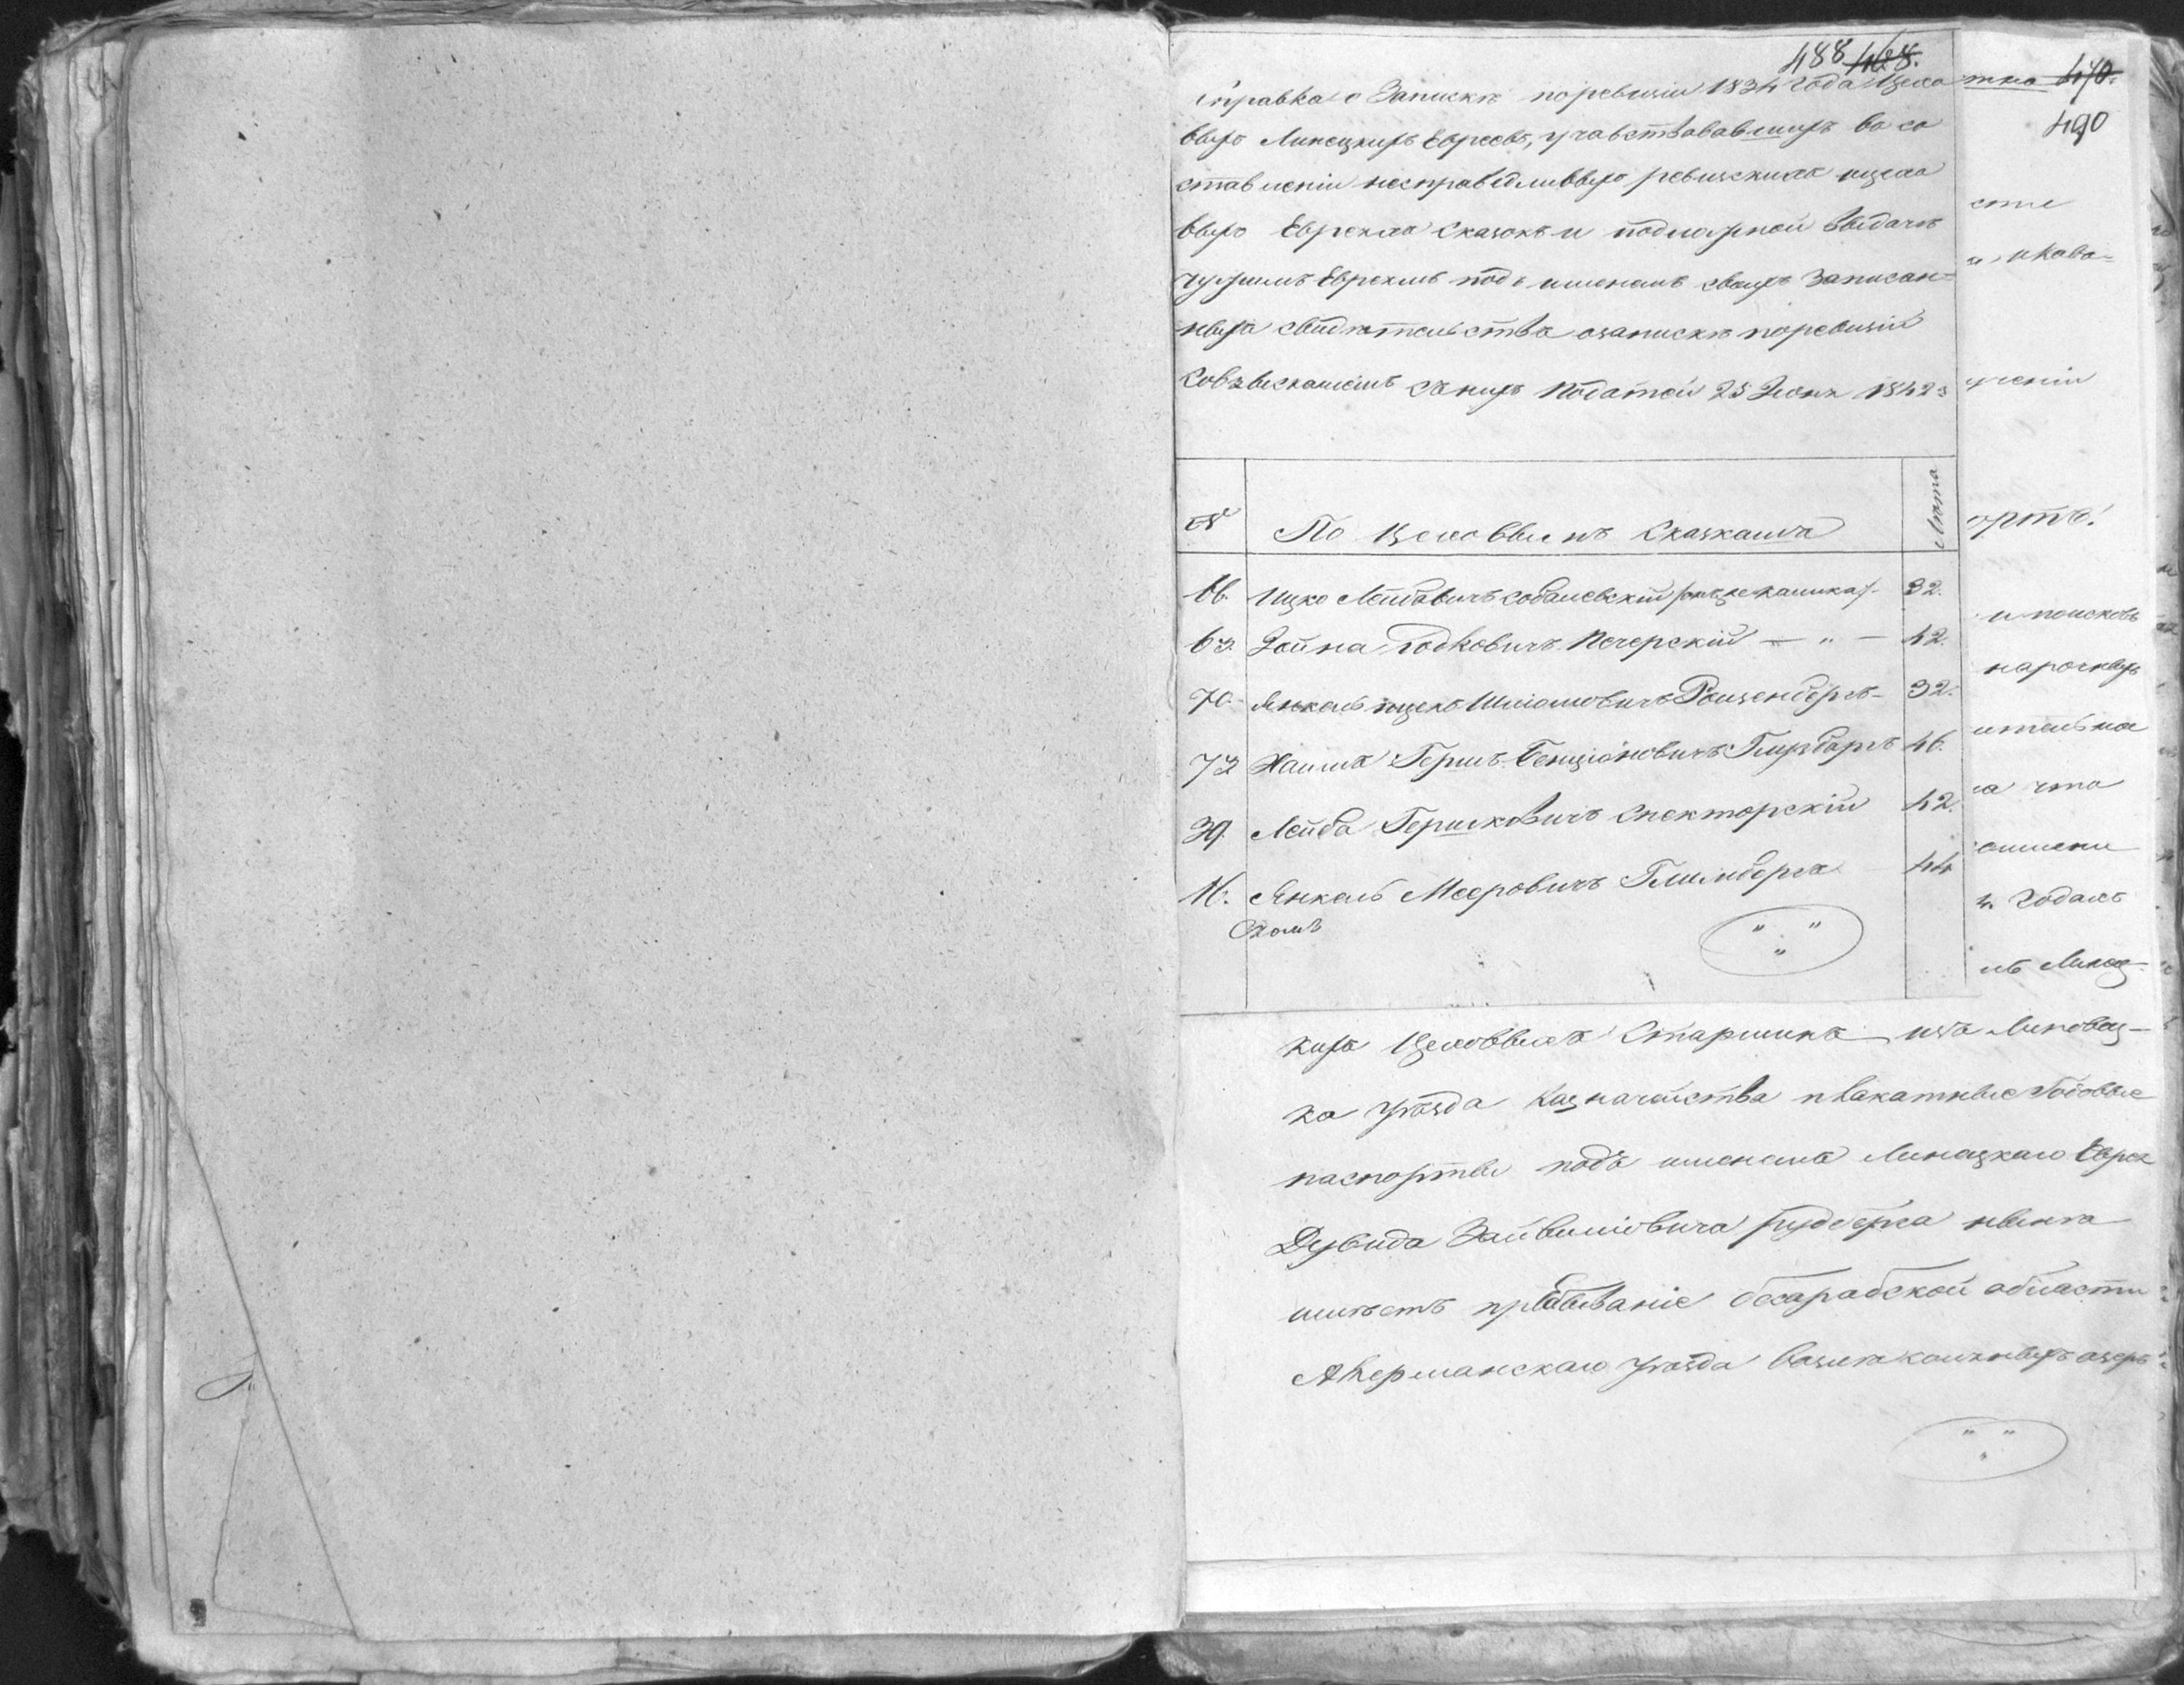 488 468.
Справка о Запискѣ по ревизіи 1834 года Цехо
выхъ Липецкихъ Евреевъ, участвовавшихъ во со
ставленіи несправедливыхъ ревизскихъ цехо
выхъ Евреямъ Сказокъ и подложной выдачѣ
чужимъ Евреямъ подъ именемъ своихъ записан=
ныхъ свидѣтельства озапискѣ поревизіи
Совзысканіемъ съ нихъ Податей 25 Іюня 1842 г
№ По Цеховымъ Сказкамъ Лѣта
66. Ицко Лейбовичъ Соболевскій 32.
63. Зойна Іодковичъ Печерскій — " — 42.
70. Янкель ицко Шліомовичъ Роизенбергъ 32.
72 Хаимъ Гершъ Бенціоновичъ 46.
39. Лейба Гершковичъ Спекторскій 42.
16. Янкель Мееровичъ 44
тно 470.
490
сти
икова=
ученіи
ортъ.
и поисковъ
нарочныхъ
ительна
а что
омшени
и годахъ
нъ Липец-
кихъ Цеховыхъ Старшинъ изъ Липовец-
ка уѣзда Казначейства плакатные Годовые
паспорты подъ именемъ Липецкаго Еврея
Дувида Зайвиліовича рудберга нынѣ
имѣетъ пребываніе бесарабской области
Акерманскаго уѣзда